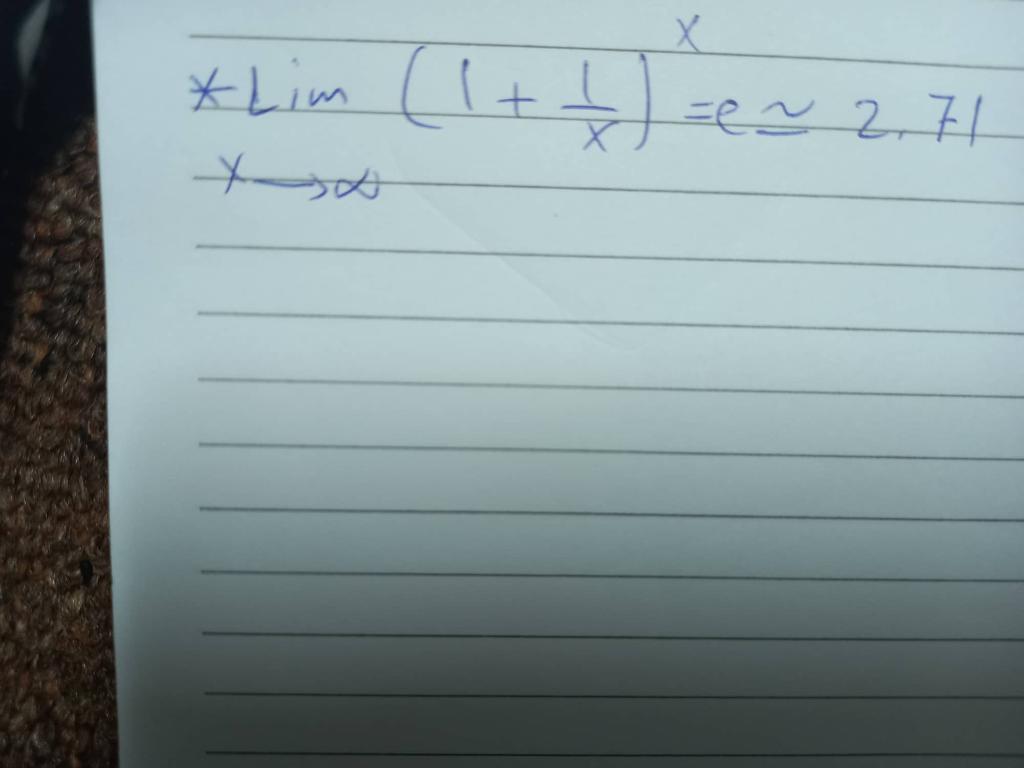 *Lim (1 + 1/x)^x =e ≃ 2.71
x→∞